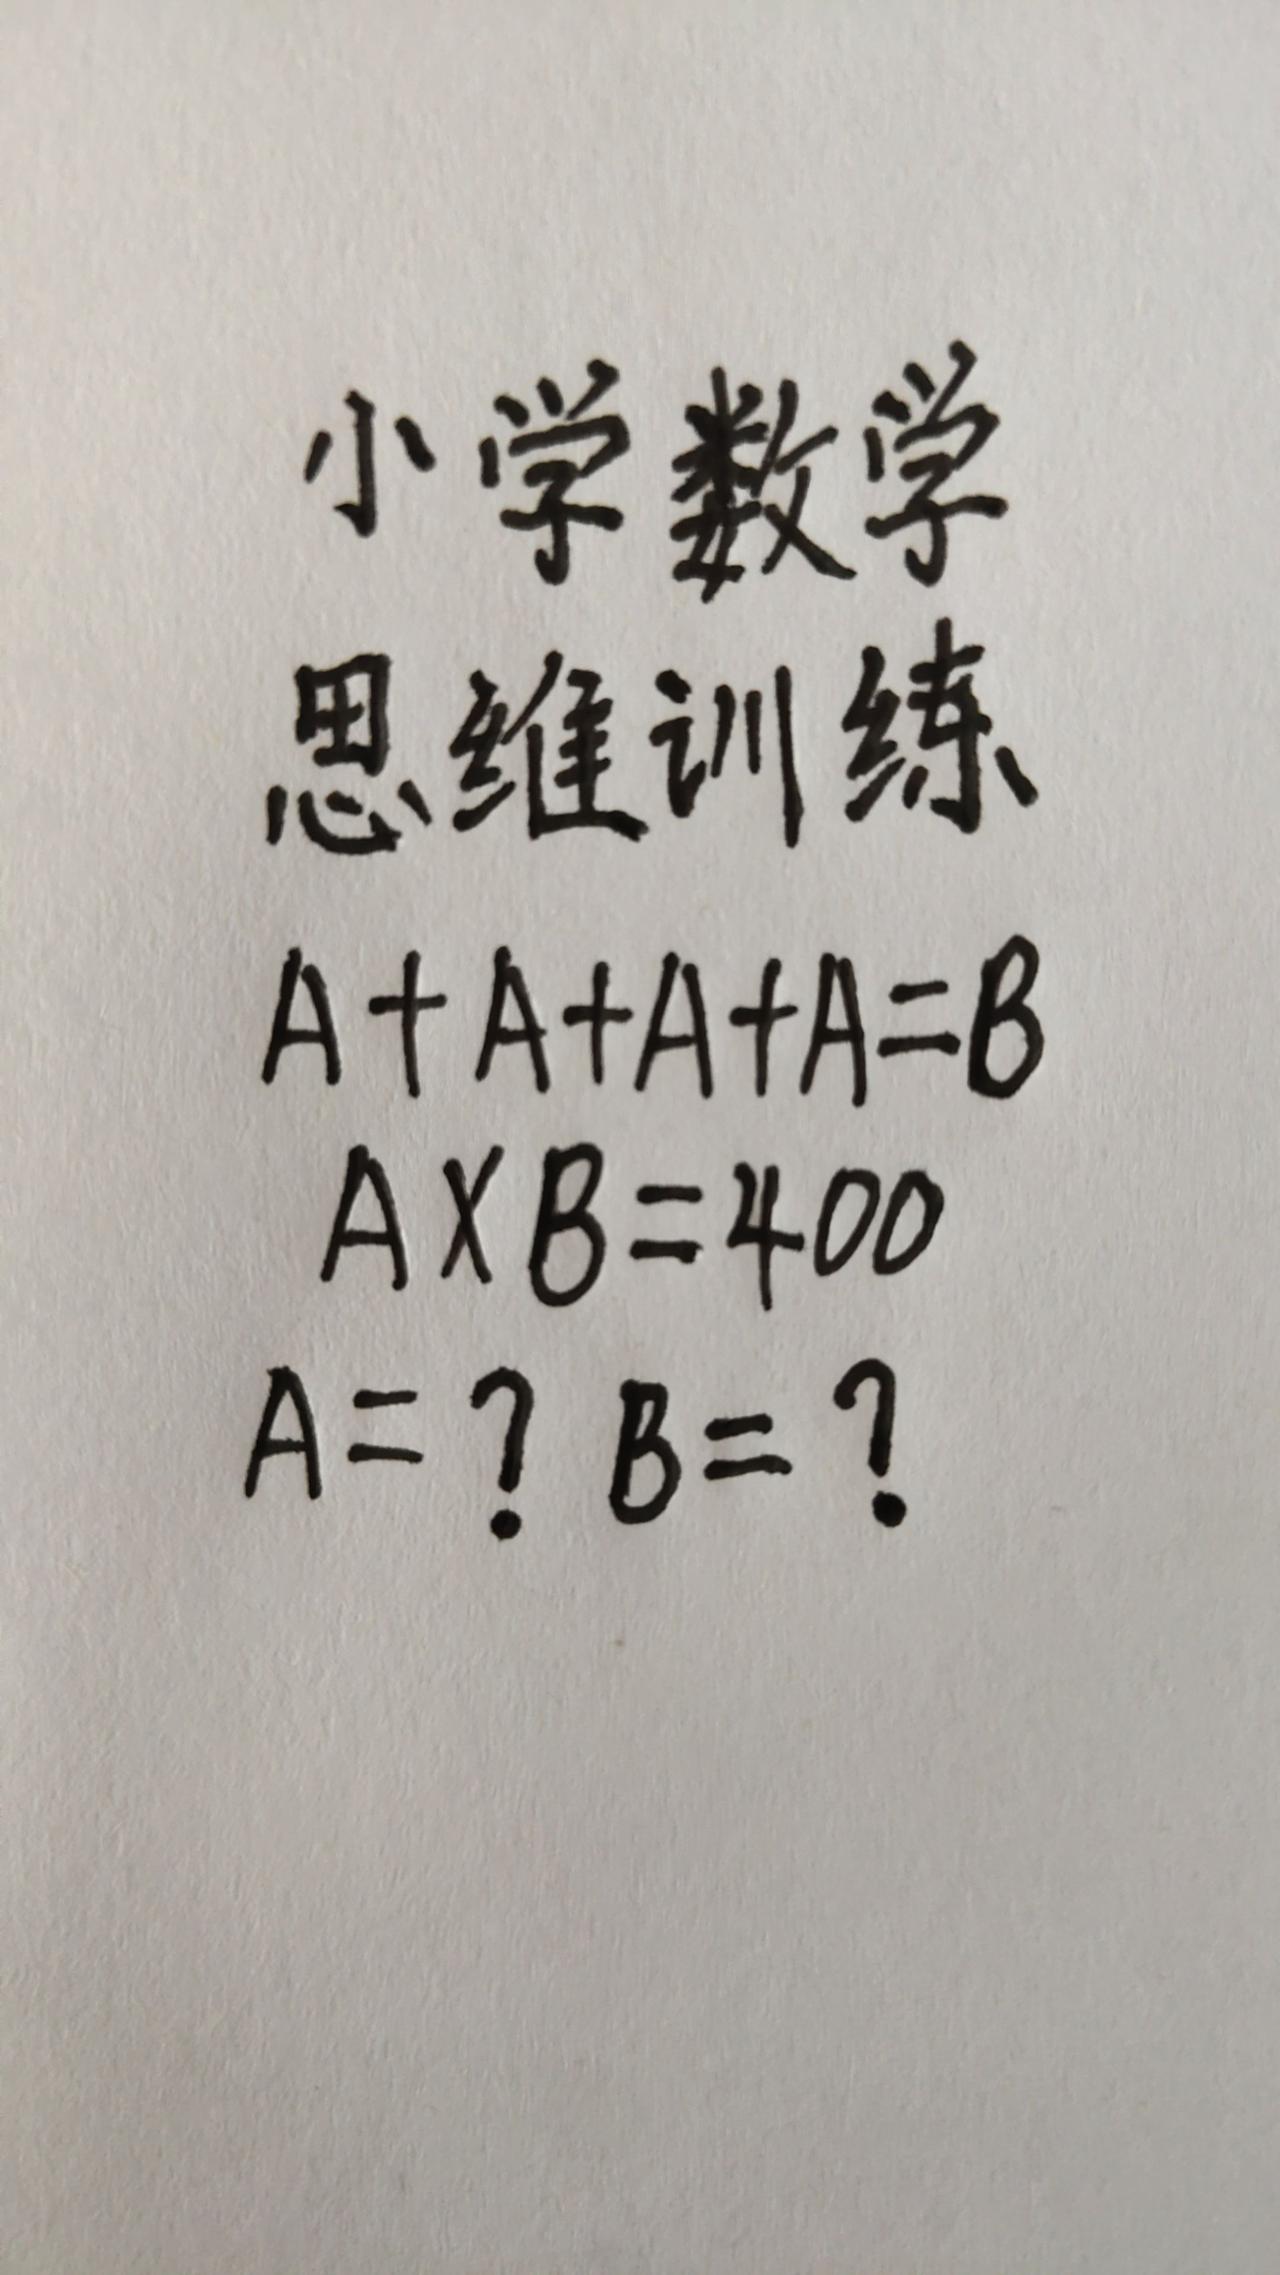 小学数学
思维训练
A+A+A+A=B
A×B=400
A=? B=?